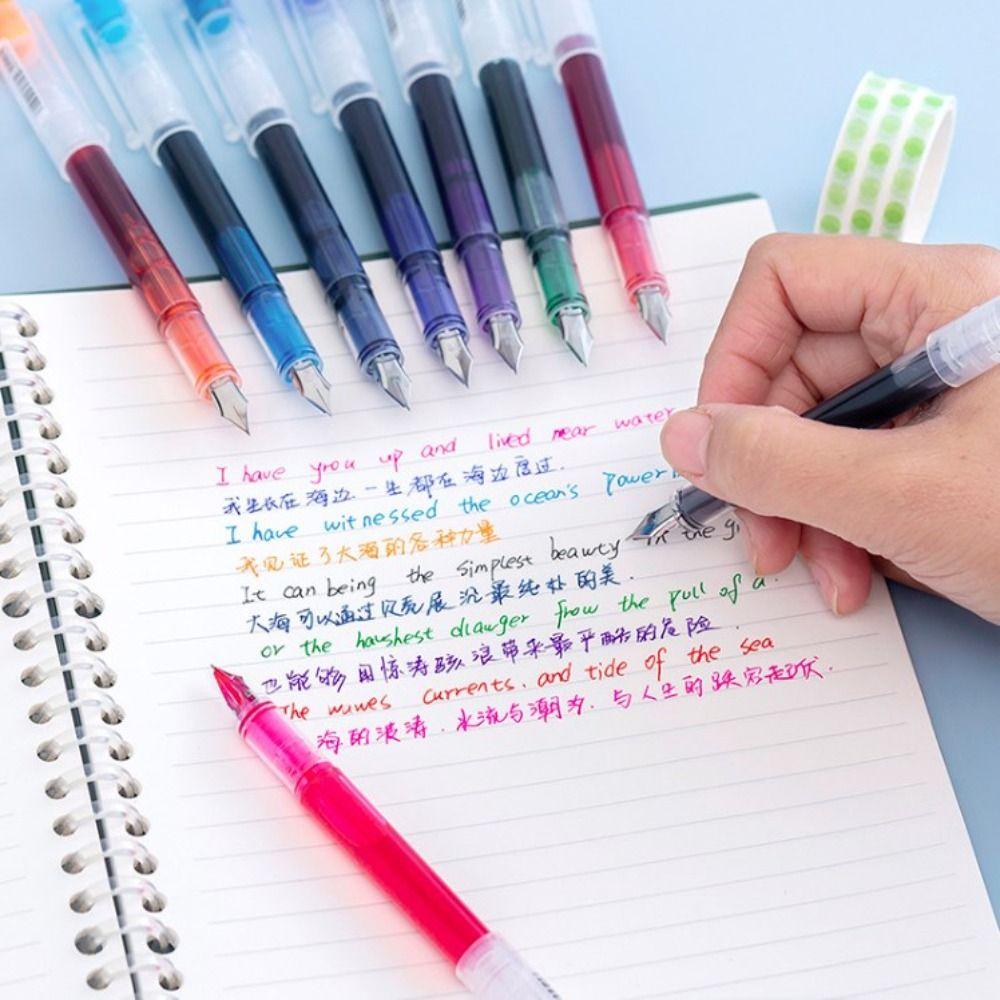 I have grou up and lived near water
我生长在海边.一生都在海边度过.
I have witnessed the ocean's power
我见证了大海的各种力量
It can being the simplest beauty in the
大海可以通过沉最纯朴的美.
or the haushest dawger from the pull of a
也能够用惊涛骇浪带来最严酷的危险.
The wuwes currents. and tide of the sea
海的浪涛.水流与潮汐.与人生的跌宕起伏.